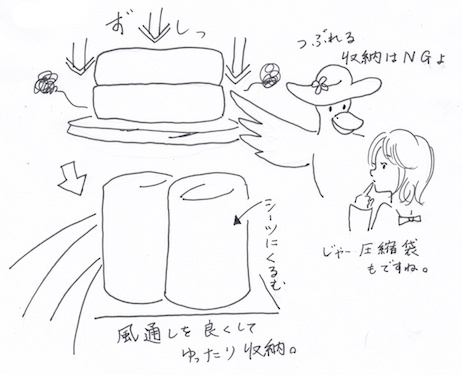 ずしっ
つぶれる
収納はNGよ
シーツにくるむ
じゃー圧縮袋
もですね。
風通しを良くして
ゆったり収納。